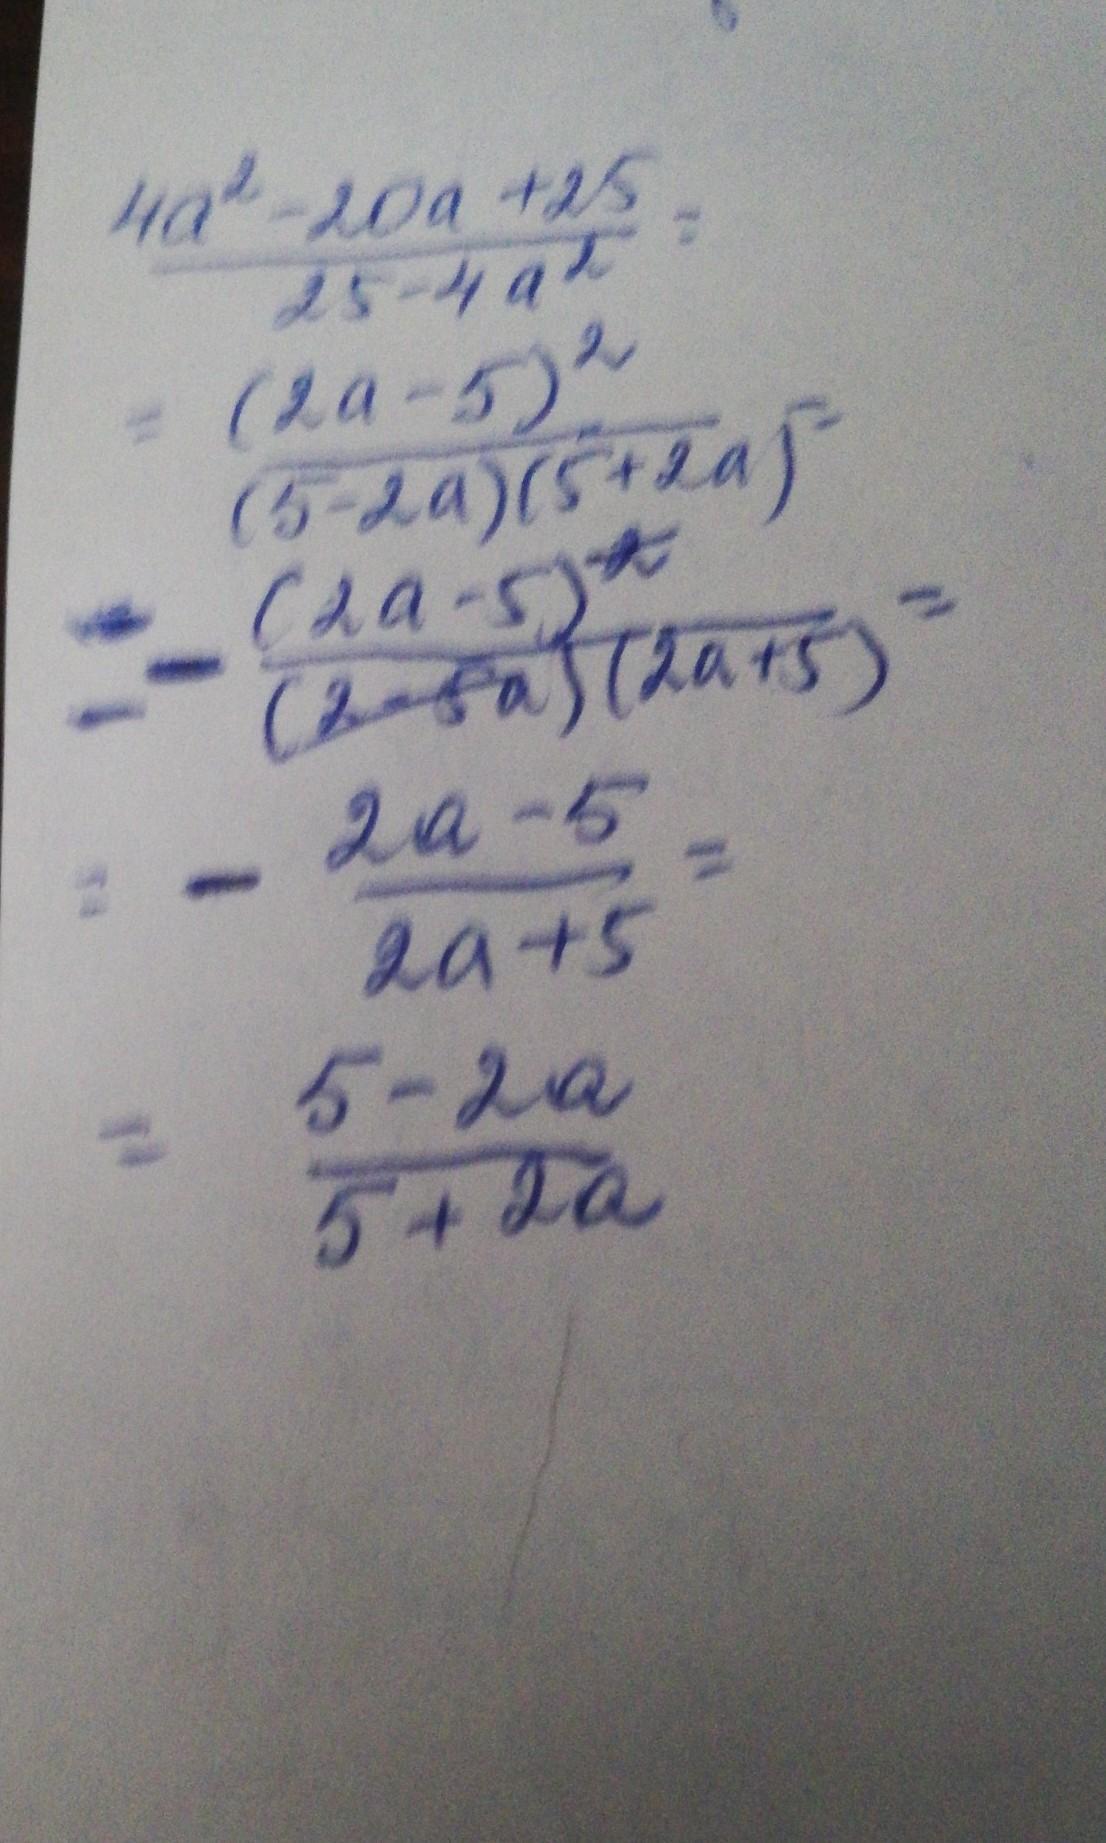 4a² - 20a + 25 =
25 - 4a²
= (2a - 5)²
(5 - 2a)(5 + 2a) =
= - (2a - 5)² =
(2 - 5a)(2a + 5)
= - 2a - 5 =
2a + 5
= 5 - 2a
5 + 2a